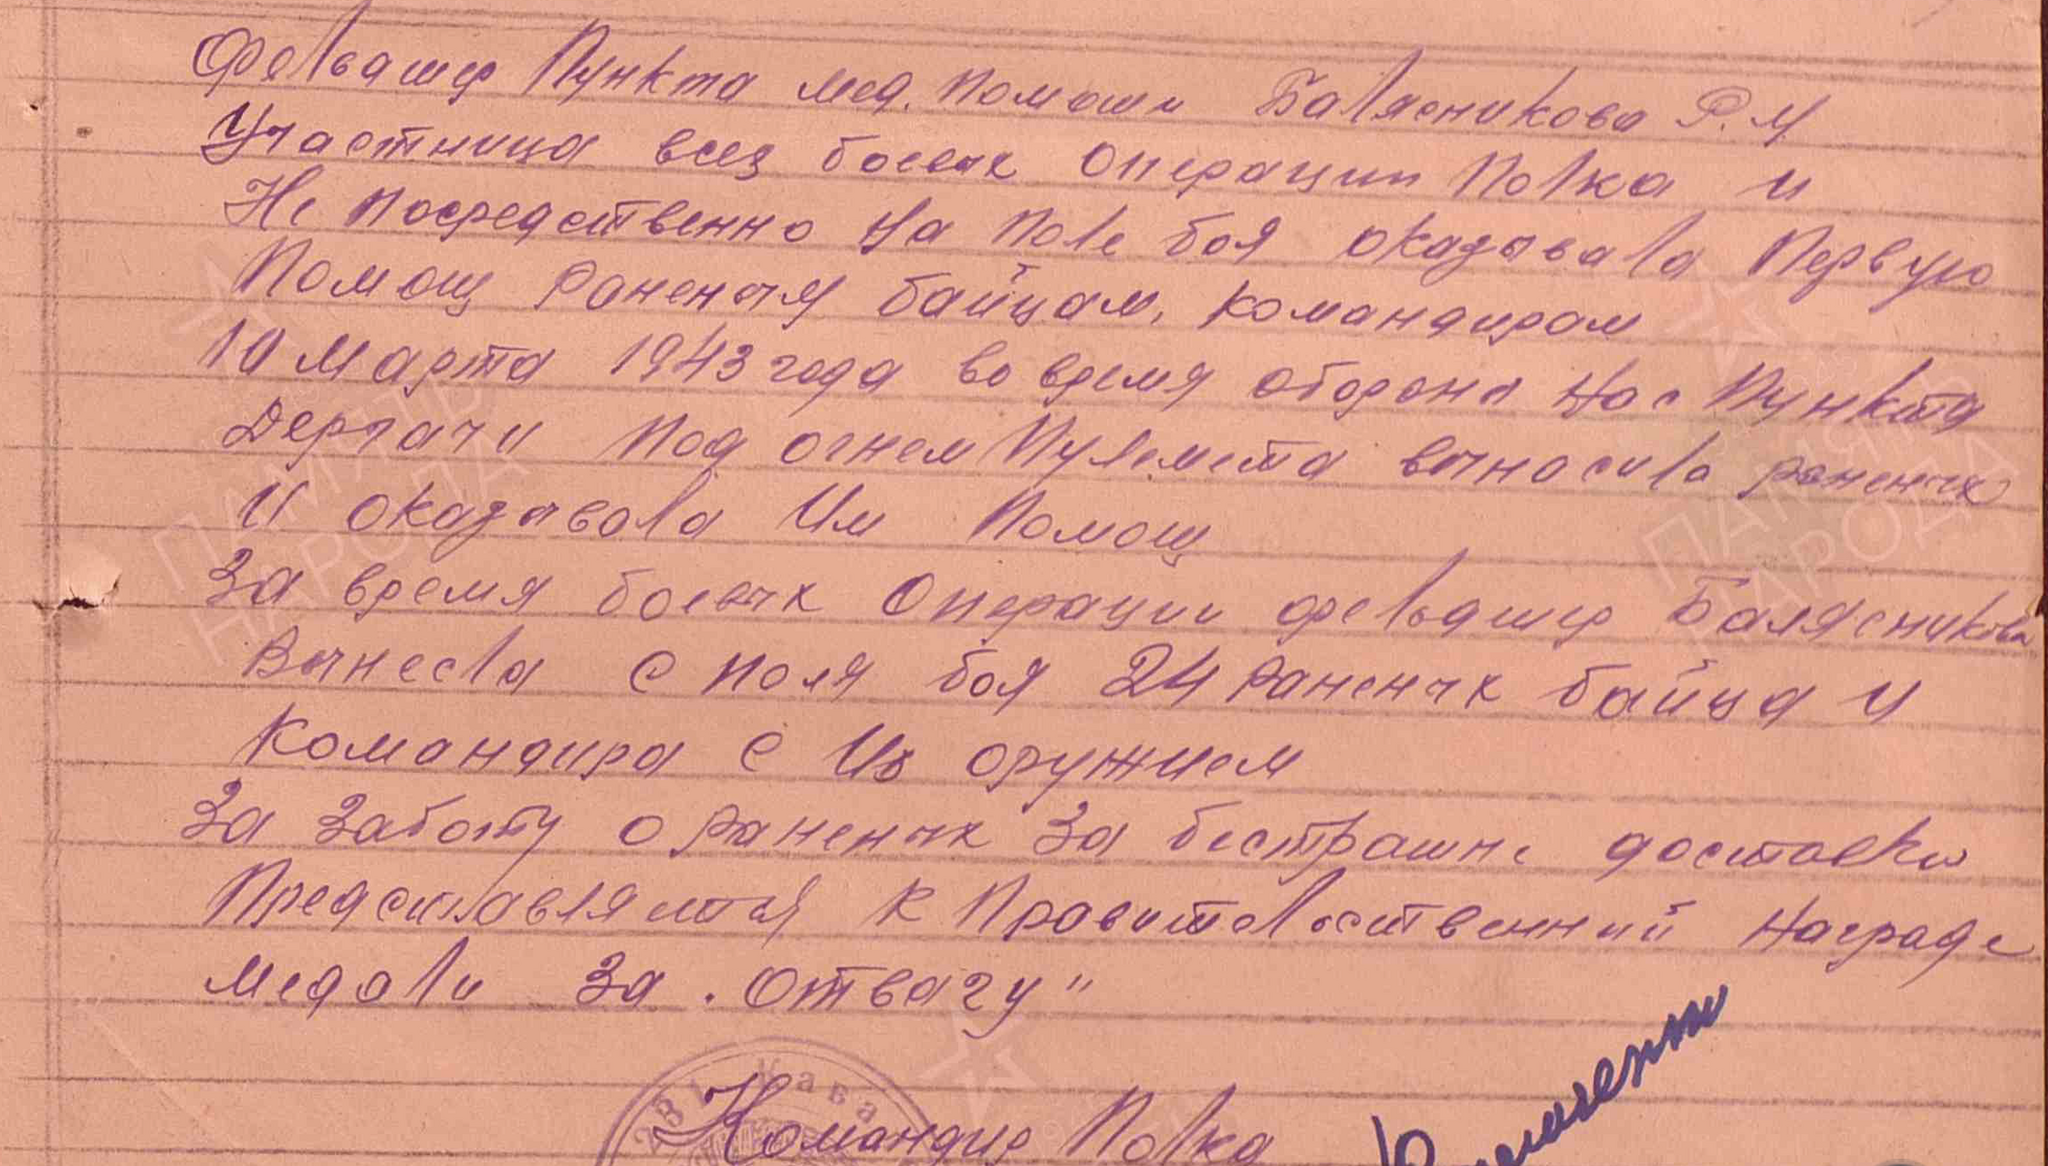 Фелвашер Пункта мед. Помощи Балясникова Р. М
Участница всех боевых Операции Полка и
Не посредственно На Поле боя оказывала Первую
Помощ Раненым байцам, командирам
10 Марта 1943 года во время обороны нас Пункта
Дергачи Под огнем Пулемета выносила раненых
И оказывала Им Помощ
За время боевых Операции фелвашер Балясникова
Вынесла с поля боя 24 Раненых байца и
Командира с Их оружием
За Заботу о Раненых За бестрашне доставки
Представляется к Правителственний Награде
Медали За „Отвагу"
Командир Полка
ПАМЯТЬ
НАРОДА
ПАМЯТЬ
НАРОДА